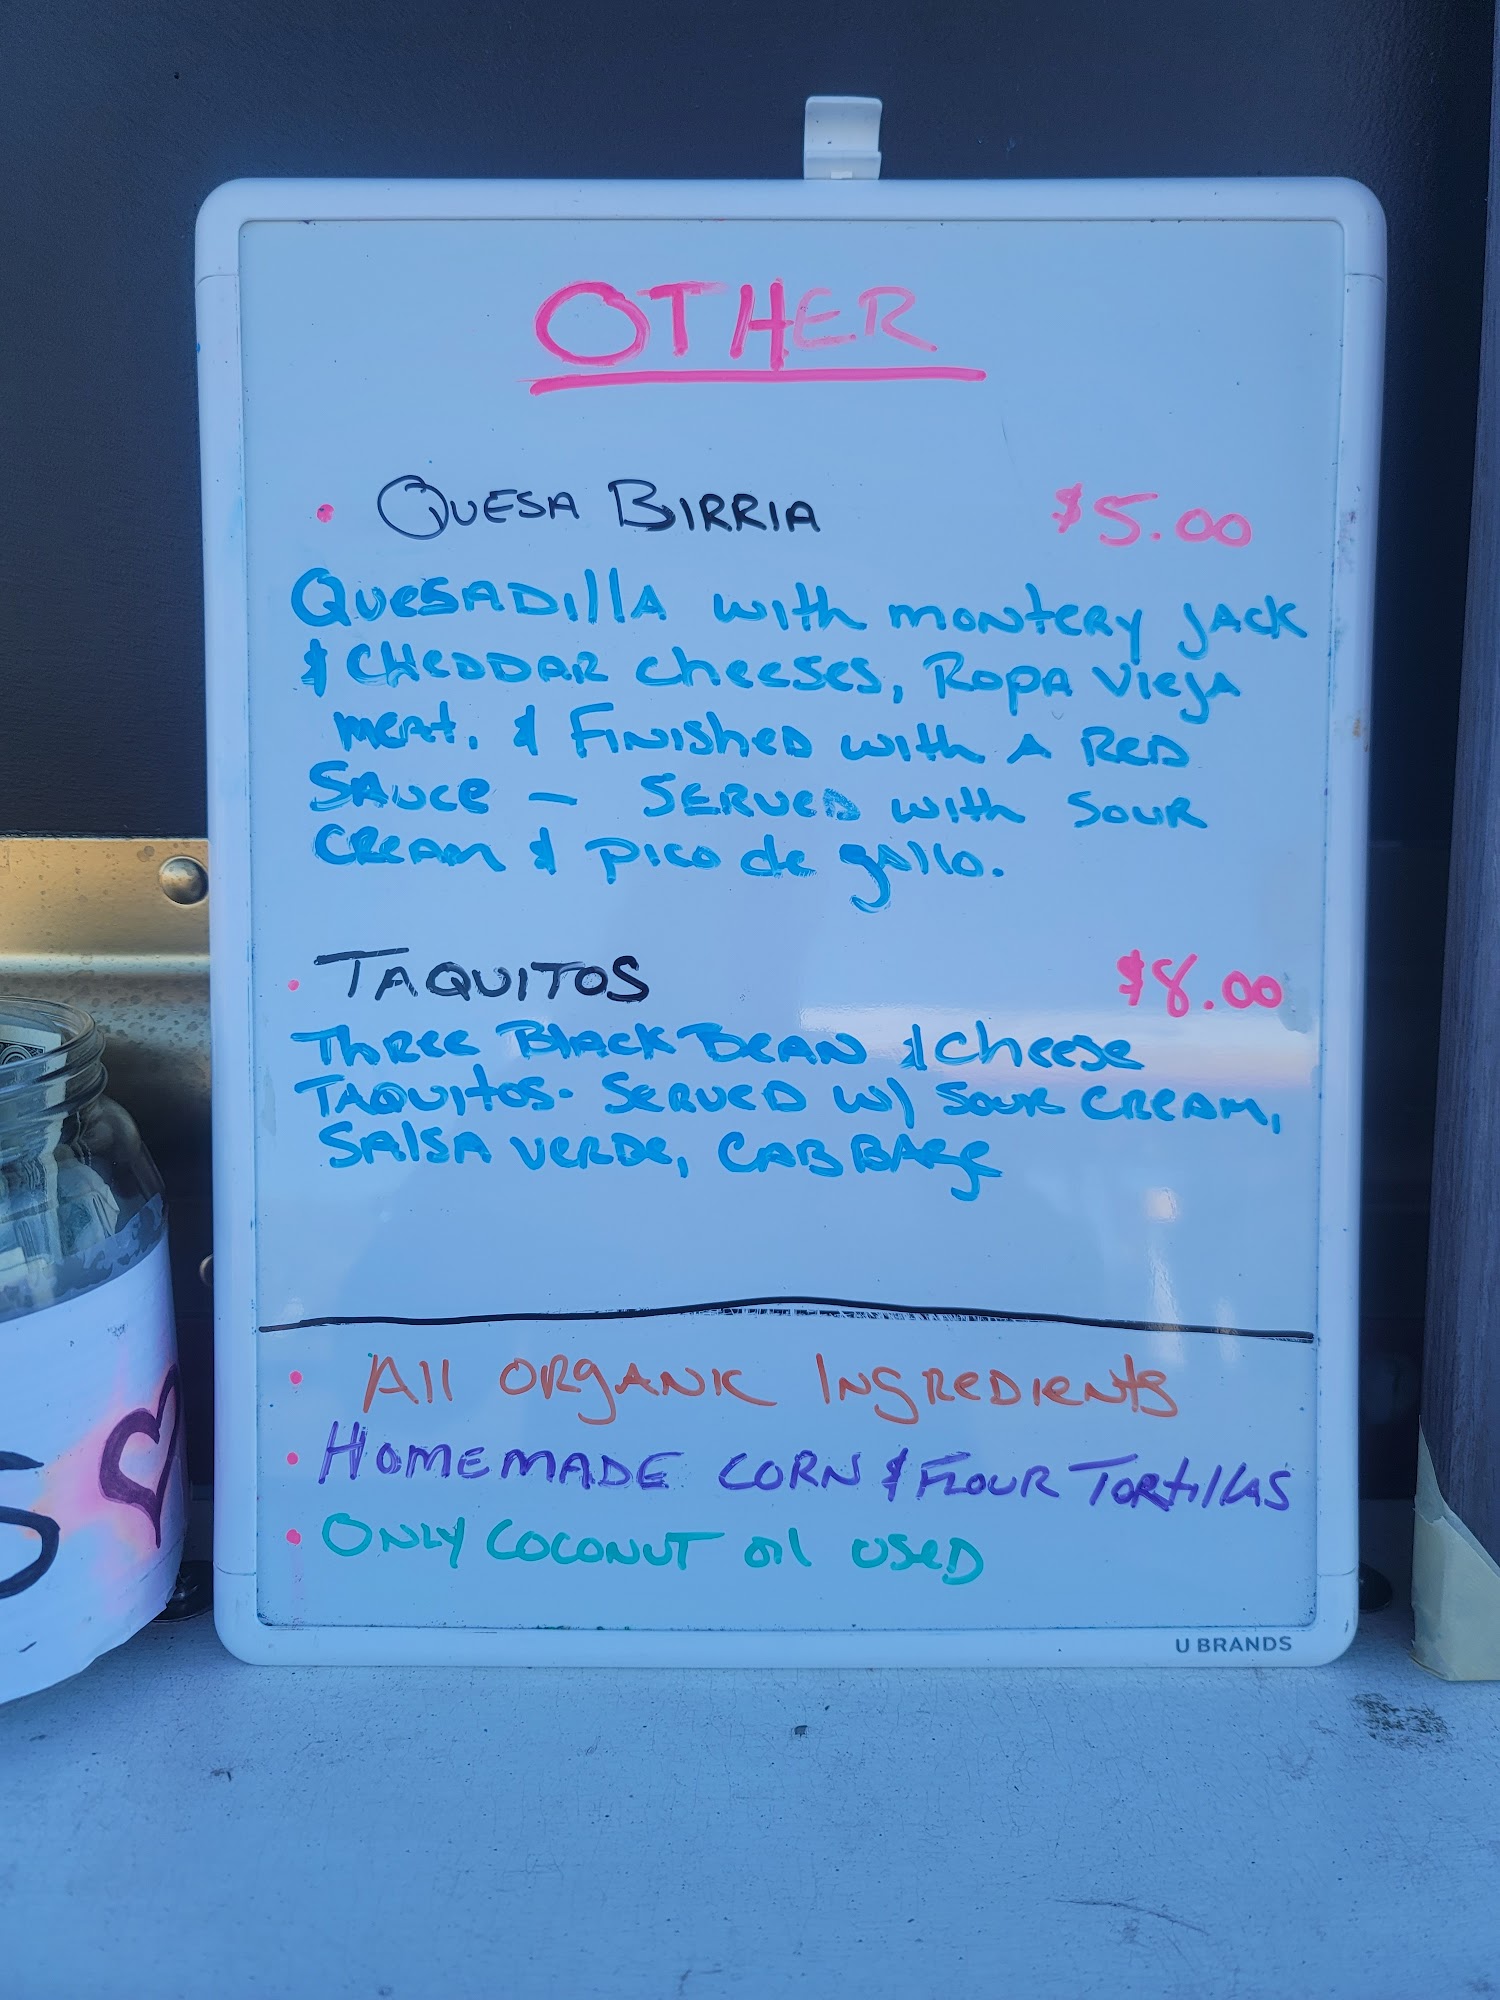 OTHER
• QUESA BIRRIA $5.00
QUESADILLA with MONTERY JACK
& CHEDDAR cheeses, ROPA VIEJA
MEAT, & FINISHED with A RED
SAUCE – SERVED with SOUR
CREAM & pico de gallo.
• TAQUITOS $8.00
THREE BLACK BEAN & cheese
TAQUITOS. SERVED W/ SOUR CREAM,
SALSA VERDE, CABBAGE
• All ORGANIC INGREDIENTS
• HOMEMADE CORN & FLOUR TORTILLAS
• ONLY COCONUT OIL USED
U BRANDS
S